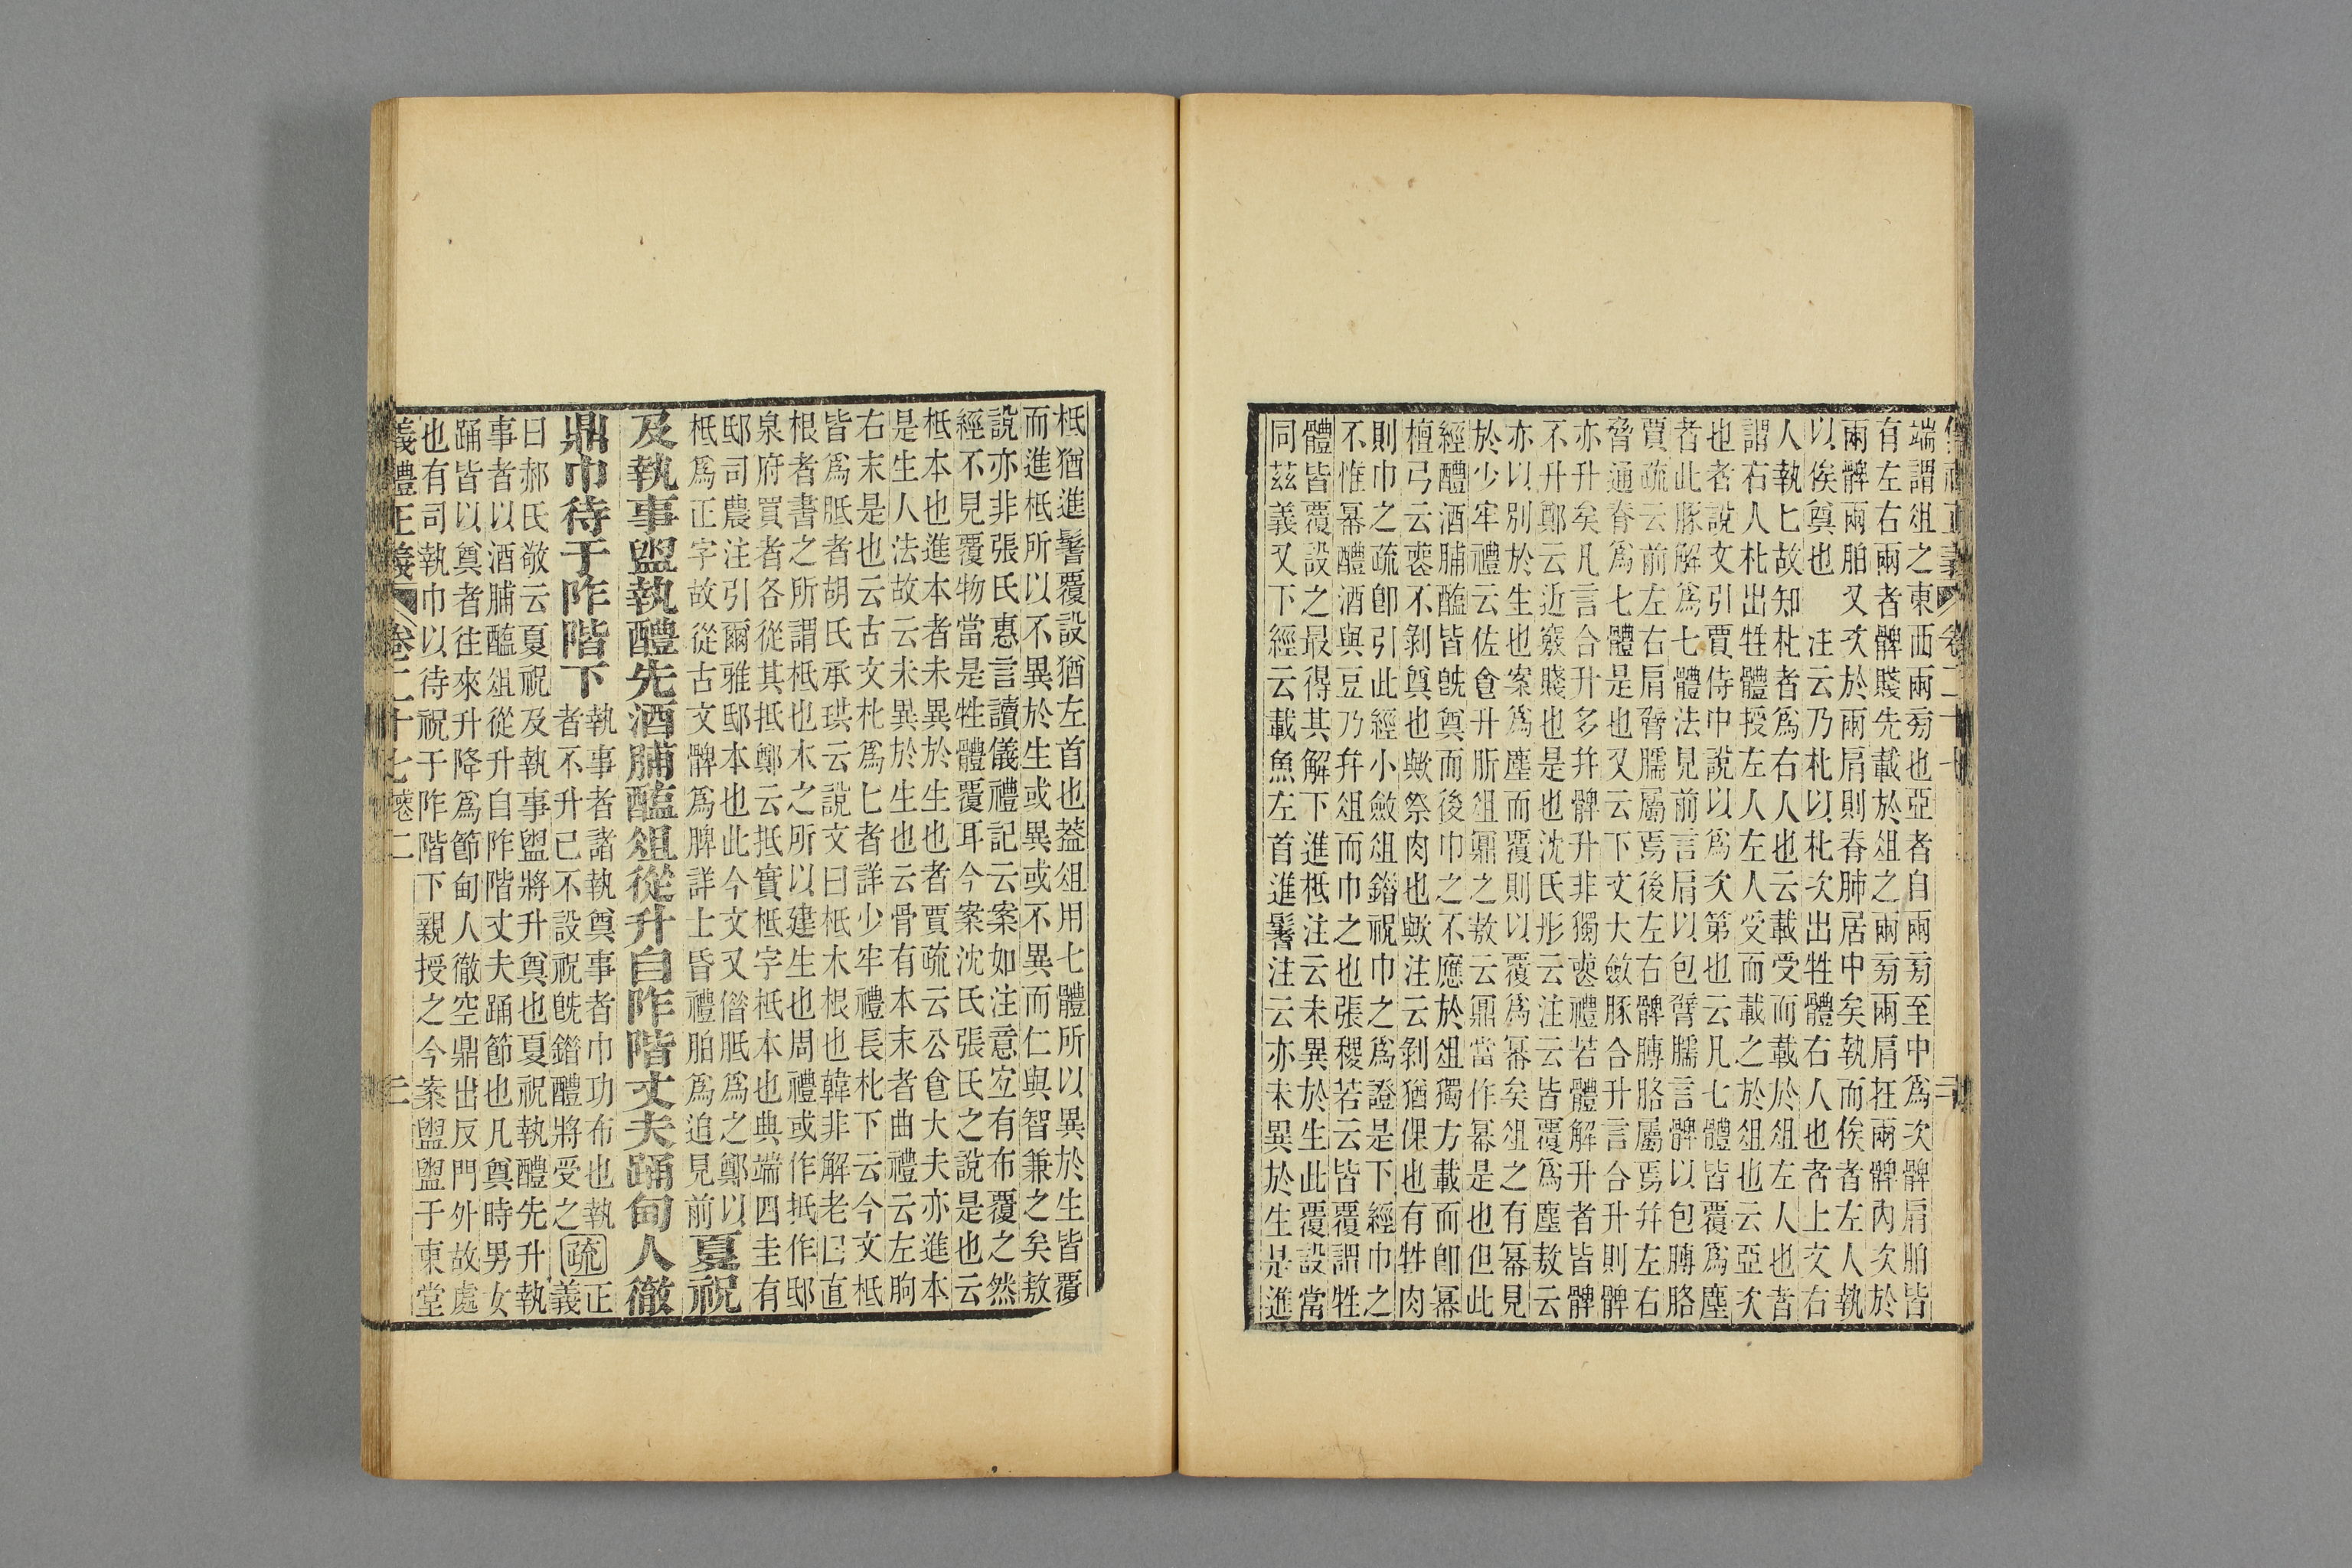 端謂俎之東西兩㫄也亞者自兩㫄至中爲次髀肩胉皆
有左右兩者髀賤先載於俎之兩㫄兩肩在兩髀內次於
兩髀兩胉又次於兩肩則脊肺居中矣執而俟者左人執
以俟奠也　注云乃朼以朼次出牲體右人也者上文右
人執匕故知朼者爲右人也云載受而載於俎左人也者
謂右人朼出牲體授左人左人受而載之於俎也云亞次
也者說文引賈侍中說以爲次第也云凡七體皆覆爲塵
者此豚解爲七體法見前言肩以包臂臑言髀以包膊胳
賈疏云前左右肩臂臑屬焉後左右髀膊胳屬焉并左右
脅通脊爲七體是也又云下文大斂豚合升言合升則髀
亦升矣凡言合升多并髀升非獨喪禮若體解升者皆髀
不升鄭云近竅賤也是也沈氏彤云注云皆覆爲塵敖云
亦以別於生也案爲塵而覆則以覆爲冪矣俎之有冪見
於少牢禮云佐食升肵俎鼏之敖云鼏當作冪是也但此
經醴酒脯醢皆旣奠而後巾之不應於俎獨方載而卽冪
檀弓云喪不剝奠也歟祭肉也歟注云剝猶倮也有牲肉
則巾之疏卽引此經小斂俎錯祝巾之爲證是下經巾之
不惟冪醴酒與豆乃并俎而巾之也張稷若云皆覆謂牲
體皆覆設之最得其解下進柢注云未異於生此覆設當
同茲義又下經云載魚左首進鬐注云亦未異於生是進
柢猶進鬐覆設猶左首也蓋俎用七體所以異於生皆覆
而進柢所以不異於生或異或不異而仁與智兼之矣敖
說亦非張氏惠言讀儀禮記云案如注意宐有布覆之然
經不見覆物當是牲體覆耳今案沈氏張氏之說是也云
柢本也進本者未異於生也者賈疏云公食大夫亦進本
是生人法故云未異於生也云骨有本末者曲禮云左朐
右末是也云古文朼爲匕者詳少牢禮長朼下云今文柢
皆爲胝者胡氏承珙云說文曰柢木根也韓非解老曰直
根者書之所謂柢也木之所以建生也周禮或作抵作邸
泉府買者各從其抵鄭云抵實柢字柢本也典端四圭有
邸司農注引爾雅邸本也此今文又偺胝爲之鄭以
柢爲正字故從古文髀爲脾詳士昏禮胉爲迫見前
夏祝
及執事盥執醴先酒脯醢俎從升自阼階丈夫踊甸人徹
鼎巾待于阼階下
執事者諸執奠事者巾功布也執
者不升已不設祝旣錯醴將受之
疏
正
義
曰郝氏敬云夏祝及執事盥將升奠也夏祝執醴先升執
事者以酒脯醢俎從升自阼階丈夫踊節也凡奠時男女
踊皆以奠者往來升降爲節甸人徹空鼎出反門外故處
也有司執巾以待祝于阼階下親授之今案盥盥于東堂
儀禮正義 卷二十七 二 三